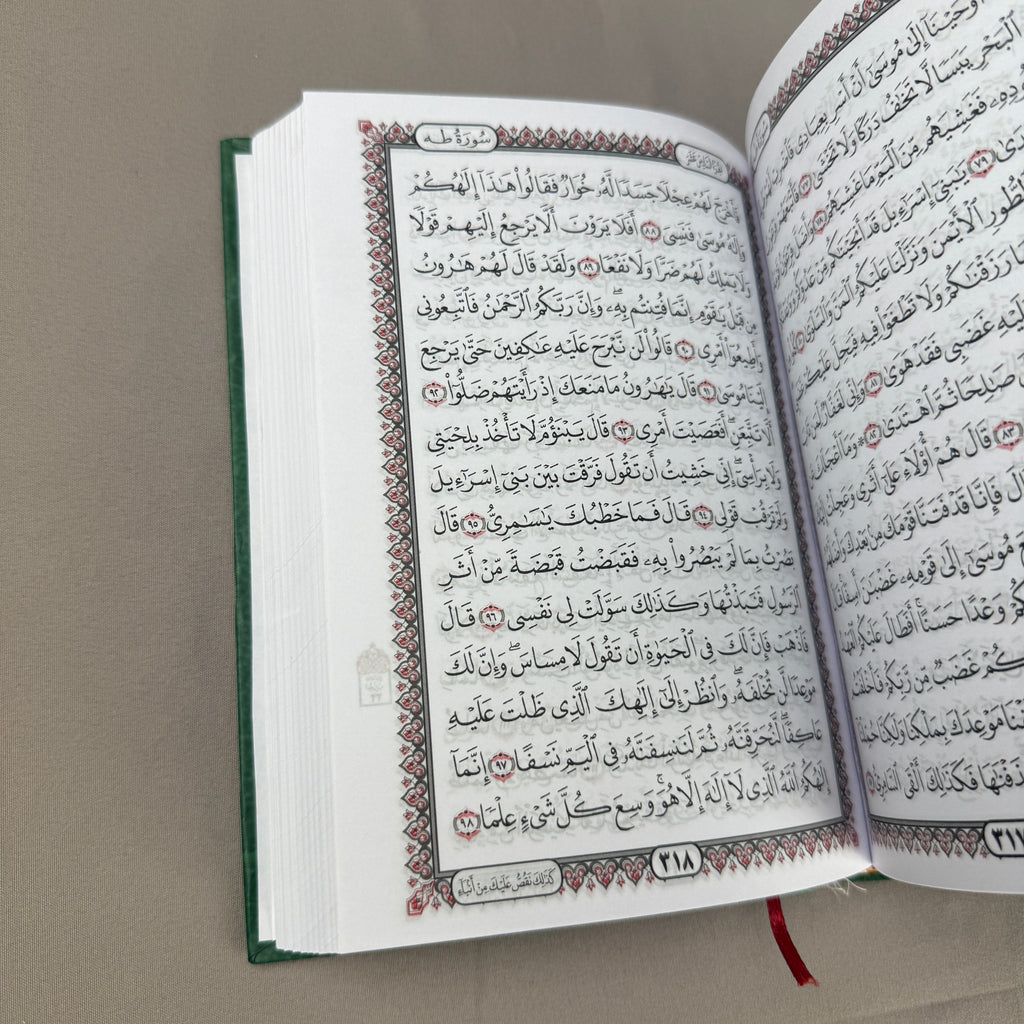 وْحَيْنَآ إِلَىٰ مُوسَىٰٓ أَنْ أَسْرِ بِعِبَادِى فَٱضْرِبْ
ٱلْبَحْرِ يَبَسًا لَّا تَخَٰفُ دَرَكًا وَلَا تَخْشَىٰ ٧٧ فَأَتْبَعَهُمْ
فَغَشِيَهُم مِّنَ ٱلْيَمِّ مَا غَشِيَهُمْ ٧٨ وَأَضَلَّ
٧٩ يَٰبَنِىٓ إِسْرَٰٓءِيلَ قَدْ أَنجَيْنَٰكُم مِّنْ عَدُوِّكُمْ وَوَٰعَدْنَٰكُمْ
ٱلطُّورِ ٱلْأَيْمَنَ وَنَزَّلْنَا عَلَيْكُمُ ٱلْمَنَّ وَٱلسَّلْوَىٰ ٨٠ كُلُوا۟
رَزَقْنَٰكُمْ وَلَا تَطْغَوْا۟ فِيهِ فَيَحِلَّ عَلَيْكُمْ
غَضَبِى فَقَدْ هَوَىٰ ٨١ وَإِنِّى لَغَفَّارٌ لِّمَن
صَٰلِحًا ثُمَّ ٱهْتَدَىٰ ٨٢ ۞ وَمَآ أَعْجَلَكَ
٨٣ قَالَ هُمْ أُو۟لَآءِ عَلَىٰٓ أَثَرِى وَعَجِلْتُ إِلَيْكَ
قَالَ فَإِنَّا قَدْ فَتَنَّا قَوْمَكَ مِنۢ بَعْدِكَ وَأَضَلَّهُمُ
مُوسَىٰٓ إِلَىٰ قَوْمِهِۦ غَضْبَٰنَ أَسِفًا قَالَ
وَعْدًا حَسَنًا ۚ أَفَطَالَ عَلَيْكُمُ ٱلْعَهْدُ
غَضَبٌ مِّن رَّبِّكُمْ فَأَخْلَفْتُم
مَوْعِدَكَ بِمَلْكِنَا وَلَٰكِنَّا حُمِّلْنَآ
فَكَذَٰلِكَ أَلْقَى ٱلسَّامِرِىُّ ٨٧
٣١٧
سُورَةُ طه
فَأَخْرَجَ لَهُمْ عِجْلًا جَسَدًا لَّهُۥ خُوَارٌ فَقَالُوا۟ هَٰذَآ إِلَٰهُكُمْ
وَإِلَٰهُ مُوسَىٰ فَنَسِىَ ٨٨ أَفَلَا يَرَوْنَ أَلَّا يَرْجِعُ إِلَيْهِمْ قَوْلًا
وَلَا يَمْلِكُ لَهُمْ ضَرًّا وَلَا نَفْعًا ٨٩ وَلَقَدْ قَالَ لَهُمْ هَٰرُونُ
مِن قَبْلُ يَٰقَوْمِ إِنَّمَا فُتِنتُم بِهِۦ ۖ وَإِنَّ رَبَّكُمُ ٱلرَّحْمَٰنُ فَٱتَّبِعُونِى
وَأَطِيعُوٓا۟ أَمْرِى ٩٠ قَالُوا۟ لَن نَّبْرَحَ عَلَيْهِ عَٰكِفِينَ حَتَّىٰ يَرْجِعَ
إِلَيْنَا مُوسَىٰ ٩١ قَالَ يَٰهَٰرُونُ مَا مَنَعَكَ إِذْ رَأَيْتَهُمْ ضَلُّوٓا۟ ٩٢
أَلَّا تَتَّبِعَنِ ۖ أَفَعَصَيْتَ أَمْرِى ٩٣ قَالَ يَبْنَؤُمَّ لَا تَأْخُذْ بِلِحْيَتِى
وَلَا بِرَأْسِىٓ ۖ إِنِّى خَشِيتُ أَن تَقُولَ فَرَّقْتَ بَيْنَ بَنِىٓ إِسْرَٰٓءِيلَ
وَلَمْ تَرْقُبْ قَوْلِى ٩٤ قَالَ فَمَا خَطْبُكَ يَٰسَٰمِرِىُّ ٩٥ قَالَ
بَصُرْتُ بِمَا لَمْ يَبْصُرُوا۟ بِهِۦ فَقَبَضْتُ قَبْضَةً مِّنْ أَثَرِ
ٱلرَّسُولِ فَنَبَذْتُهَا وَكَذَٰلِكَ سَوَّلَتْ لِى نَفْسِى ٩٦ قَالَ
فَٱذْهَبْ فَإِنَّ لَكَ فِى ٱلْحَيَوٰةِ أَن تَقُولَ لَا مِسَاسَ ۖ وَإِنَّ لَكَ
مَوْعِدًا لَّن تُخْلَفَهُۥ ۖ وَٱنظُرْ إِلَىٰٓ إِلَٰهِكَ ٱلَّذِى ظَلْتَ عَلَيْهِ
عَاكِفًا ۖ لَّنُحَرِّقَنَّهُۥ ثُمَّ لَنَنسِفَنَّهُۥ فِى ٱلْيَمِّ نَسْفًا ٩٧ إِنَّمَآ
إِلَٰهُكُمُ ٱللَّهُ ٱلَّذِى لَآ إِلَٰهَ إِلَّا هُوَ ۚ وَسِعَ كُلَّ شَىْءٍ عِلْمًا ٩٨
كَذَٰلِكَ نَقُصُّ عَلَيْكَ مِنْ أَنۢبَآءِ
٣١٨